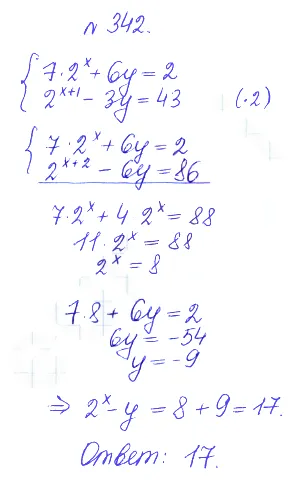 № 342.
{ 7·2^x + 6y = 2
2^(x+1) − 3y = 43 (·2)
{ 7·2^x + 6y = 2
2^(x+2) − 6y = 86
7·2^x + 4 2^x = 88
11·2^x = 88
2^x = 8
7·8 + 6y = 2
6y = −54
y = −9
⇒ 2^x − y = 8 + 9 = 17.
Ответ: 17.